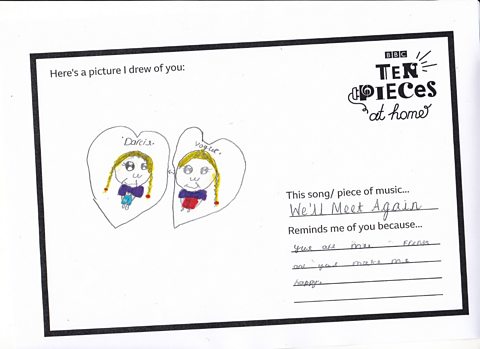 Here's a picture I drew of you:
BBC
TEN
PIECES
at home
Darcie
This song/ piece of music...
We'll Meet Again
Reminds me of you because...
are my friend
make me
happy.